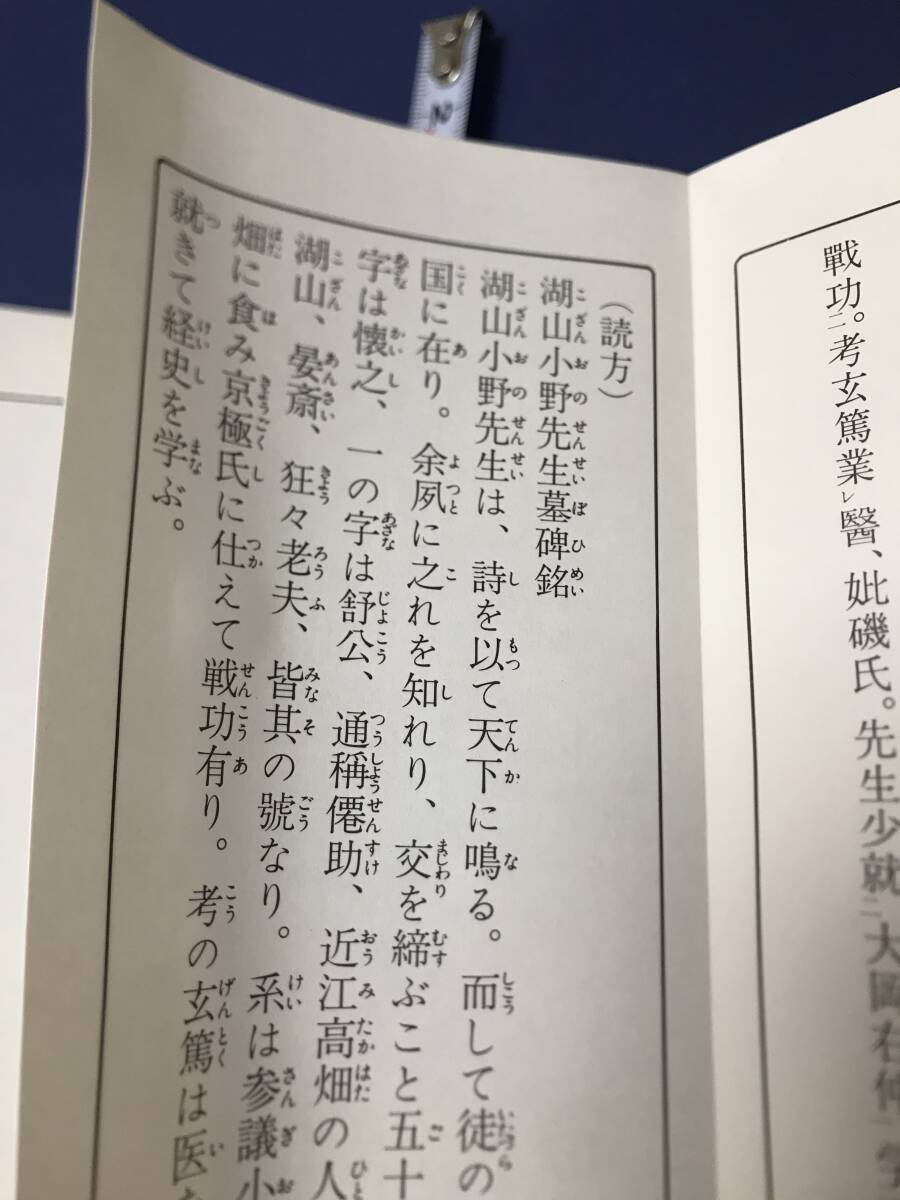 戰功。考玄篤業レ醫、妣磯氏。先生少就二大岡右仲一学
（読方）
湖山小野先生墓碑銘
湖山小野先生は、詩を以て天下に鳴る。而して徒の
国に在り。余夙に之れを知れり、交を締ぶこと五十
字は懐之、一の字は舒公、通稱僊助、近江高畑の人
湖山、晏斎、狂々老夫、皆其の號なり。系は参議小
畑に食み京極氏に仕えて戦功有り。考の玄篤は医
就きて経史を学ぶ。